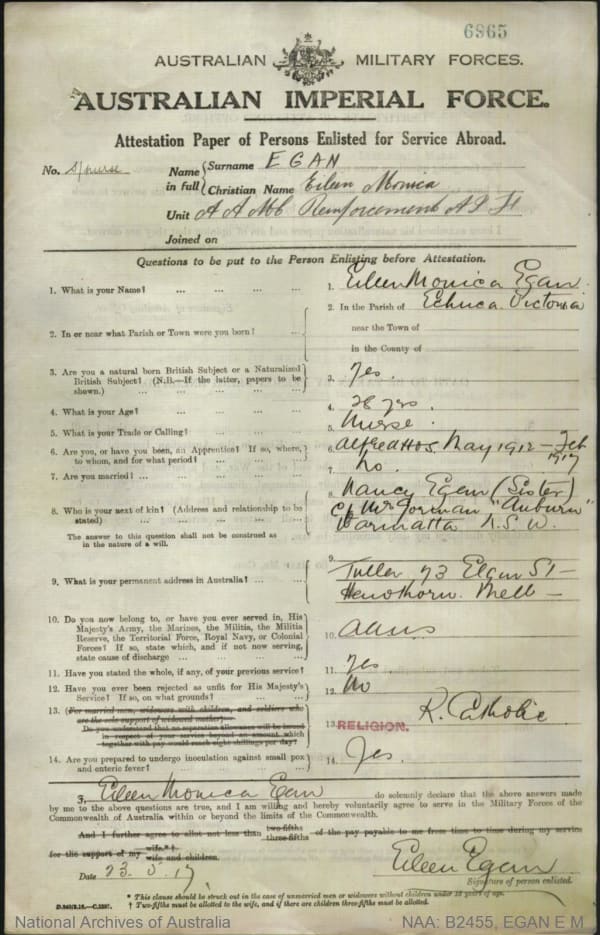 6865
AUSTRALIAN MILITARY FORCES.
AUSTRALIAN IMPERIAL FORCE.
Attestation Paper of Persons Enlisted for Service Abroad.
No. S/nurse
Name in full { Surname EGAN
Christian Name Eileen Monica
Unit A A M C Reinforcement A I F
Joined on
Questions to be put to the Person Enlisting before Attestation.
1. What is your Name? ... ... ... 1. Eileen Monica Egan
2. In or near what Parish or Town were you born? ... 2. In the Parish of Echuca Victoria
near the Town of
in the County of
3. Are you a natural born British Subject or a Naturalized
British Subject? (N.B.—If the latter, papers to be
shown.) ... ... ... ... 3. Yes.
4. What is your Age? ... ... ... 4. 28 yrs.
5. What is your Trade or Calling? ... ... ... 5. Nurse.
6. Are you, or have you been, an Apprentice? If so, where,
to whom, and for what period? ... ... 6. Alfred Hos. May 1912 – Feb
1917
7. Are you married? ... ... ... ... 7. No.
8. Who is your next of kin? (Address and relationship to be
stated) ... ... ... ... 8. Nancy Egan (Sister)
c/o Mr Gorman "Auburn"
N.S.W.
The answer to this question shall not be construed as
in the nature of a will.
9. What is your permanent address in Australia? ... ... 9. Tuller 73 Elgin St –
Hawthorn. Melb –
10. Do you now belong to, or have you ever served in, His
Majesty's Army, the Marines, the Militia, the Militia
Reserve, the Territorial Force, Royal Navy, or Colonial
Forces? If so, state which, and if not now serving,
state cause of discharge ... ... ... 10.
11. Have you stated the whole, if any, of your previous service? 11. Yes
12. Have you ever been rejected as unfit for His Majesty's
Service? If so, on what grounds? ... ... 12. No
13. (For married men, widowers with children, and soldiers who
are the sole support of widowed mother)—
Do you understand that no separation allowance will be issued
in respect of your service beyond an amount which
together with pay would reach eight shillings per day?
13. RELIGION. R. Catholic
14. Are you prepared to undergo inoculation against small pox
and enteric fever? ... ... ... 14. Yes.
I, Eileen Monica Egan do solemnly declare that the above answers made
by me to the above questions are true, and I am willing and hereby voluntarily agree to serve in the Military Forces of the
Commonwealth of Australia within or beyond the limits of the Commonwealth.
And I further agree to allot not less than two-fifths three-fifths of the pay payable to me from time to time during my service
for the support of my wife.*† wife and children.
Eileen Egan
Date 23.5.17
Signature of person enlisted.
* This clause should be struck out in the case of unmarried men or widowers without children under 18 years of age.
† Two-fifths must be allotted to the wife, and if there are children three-fifths must be allotted.
National Archives of Australia
NAA: B2455, EGAN E M